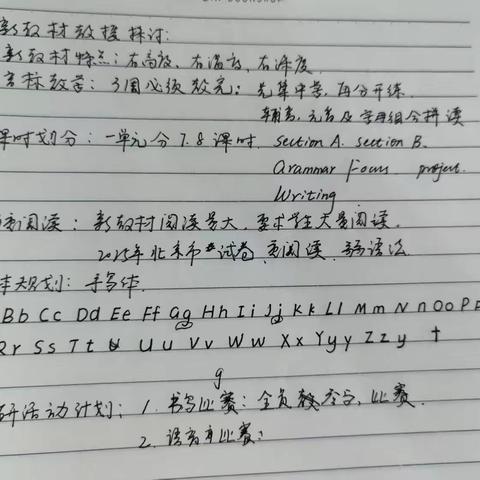 新教材教授探讨:
新教材特点: 有高度、有温度、有深度
音标教学: 3周必须教完: 先集中学, 再分开练
辅音, 元音及字母组合拼读
课时划分: 一单元分7.8课时. Section A. Section B.
Grammar Focus. project.
Writing
阅读: 新教材阅读量大, 要求学生大量阅读.
2025年北京市试卷, 重阅读, 弱语法.
规划: 手写体.
Bb Cc Dd Ee Ff Gg Hh Ii Jj Kk Ll Mm Nn Oo Pp
Rr Ss Tt Uu Vv Ww Xx Yy Zz y t
g
研活动计划: 1. 书写比赛: 全员参与, 比赛.
2. 语音节比赛: